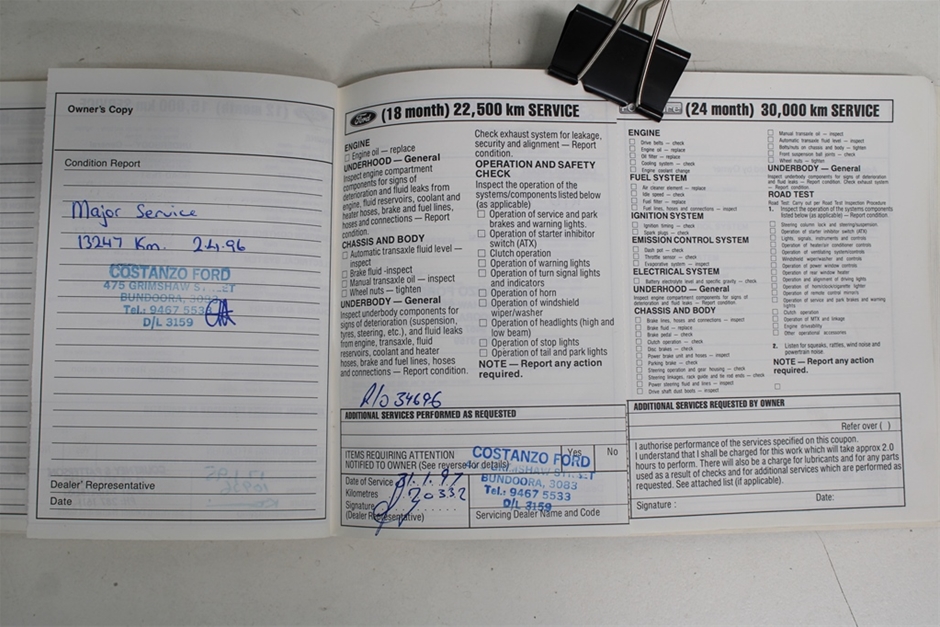 Owner's Copy
Condition Report
Major Service
13247 Km. 2.4.96
COSTANZO FORD
475 GRIMSHAW STREET
BUNDOORA, 3083
Tel.: 9467 5533
D/L 3159
Dealer' Representative
Date
Ford (18 month) 22,500 km SERVICE
ENGINE
Engine oil — replace
UNDERHOOD — General
Inspect engine compartment
components for signs of
deterioration and fluid leaks from
engine, fluid reservoirs, coolant and
heater hoses, brake and fuel lines,
hoses and connections — Report
condition.
CHASSIS AND BODY
Automatic transaxle fluid level —
inspect
Brake fluid -inspect
Manual transaxle oil — inspect
Wheel nuts — tighten
UNDERBODY — General
Inspect underbody components for
signs of deterioration (suspension,
tyres, steering, etc.), and fluid leaks
from engine, transaxle, fluid
reservoirs, coolant and heater
hoses, brake and fuel lines, hoses
and connections — Report condition.
Check exhaust system for leakage,
security and alignment — Report
condition.
OPERATION AND SAFETY
CHECK
Inspect the operation of the
systems/components listed below
(as applicable)
Operation of service and park
brakes and warning lights.
Operation of starter inhibitor
switch (ATX)
Clutch operation
Operation of warning lights
Operation of turn signal lights
and indicators
Operation of horn
Operation of windshield
wiper/washer
Operation of headlights (high and
low beam)
Operation of stop lights
Operation of tail and park lights
NOTE — Report any action
required.
R/O 34696
ADDITIONAL SERVICES PERFORMED AS REQUESTED
ITEMS REQUIRING ATTENTION Yes No
NOTIFIED TO OWNER (See reverse for details)
Date of Service 31.1.97
Kilometres 20332
Signature
(Dealer Representative)
COSTANZO FORD
GRIMSHAW STREET
BUNDOORA, 3083
Tel.: 9467 5533
D/L 3159
Servicing Dealer Name and Code
(24 month) 30,000 km SERVICE
ENGINE
Drive belts — check
Engine oil — replace
Oil filter — replace
Cooling system — check
Engine coolant change
FUEL SYSTEM
Air cleaner element — replace
Idle speed — check
Fuel filter — replace
Fuel lines, hoses and connections — inspect
IGNITION SYSTEM
Ignition timing — check
Spark plugs — check
EMISSION CONTROL SYSTEM
Dash pot — check
Throttle sensor — check
Evaporative system — inspect
ELECTRICAL SYSTEM
Battery electrolyte level and specific gravity — check
UNDERHOOD — General
Inspect engine compartment components for signs of
deterioration and fluid leaks — Report condition.
CHASSIS AND BODY
Brake lines, hoses and connections — inspect
Brake fluid — replace
Brake pedal — check
Clutch operation — check
Disc brakes — check
Power brake unit and hoses — inspect
Parking brake — check
Steering operation and gear housing — check
Steering linkages, rack guide and tie rod ends — check
Power steering fluid and lines — inspect
Drive shaft dust boots — inspect
Manual transaxle oil — inspect
Automatic transaxle fluid level — inspect
Bolts/nuts on chassis and body — tighten
Front suspension ball joints — check
Wheel nuts — tighten
UNDERBODY — General
Inspect underbody components for signs of deterioration
and fluid leaks — Report condition. Check exhaust system
— Report condition.
ROAD TEST
Road Test: Carry out per Road Test Inspection Procedure
1. Inspect the operation of the systems components
listed below (as applicable) — Report condition.
Steering column lock and steering/suspension.
Operation of starter inhibitor switch (ATX)
Lights, signals, instruments and controls
Operation of heater/air conditioner controls
Operation of ventilating system/controls
Windshield wiper/washer and controls
Operation of power window controls
Operation of rear window heater
Operation and alignment of driving lights
Operation of horns/clocks/cigarette lighter
Operation of remote control mirrors
Operation of service and park brakes and warning
lights
Clutch operation
Operation of MTX and linkage
Engine driveability
Other operational accessories
2. Listen for squeaks, rattles, wind noise and
powertrain noise.
NOTE — Report any action
required.
ADDITIONAL SERVICES REQUESTED BY OWNER
Refer over ( )
I authorise performance of the services specified on this coupon.
I understand that I shall be charged for this work which will take approx 2.0
hours to perform. There will also be a charge for lubricants and for any parts
used as a result of checks and for additional services which are performed as
requested. See attached list (if applicable).
Signature : Date: